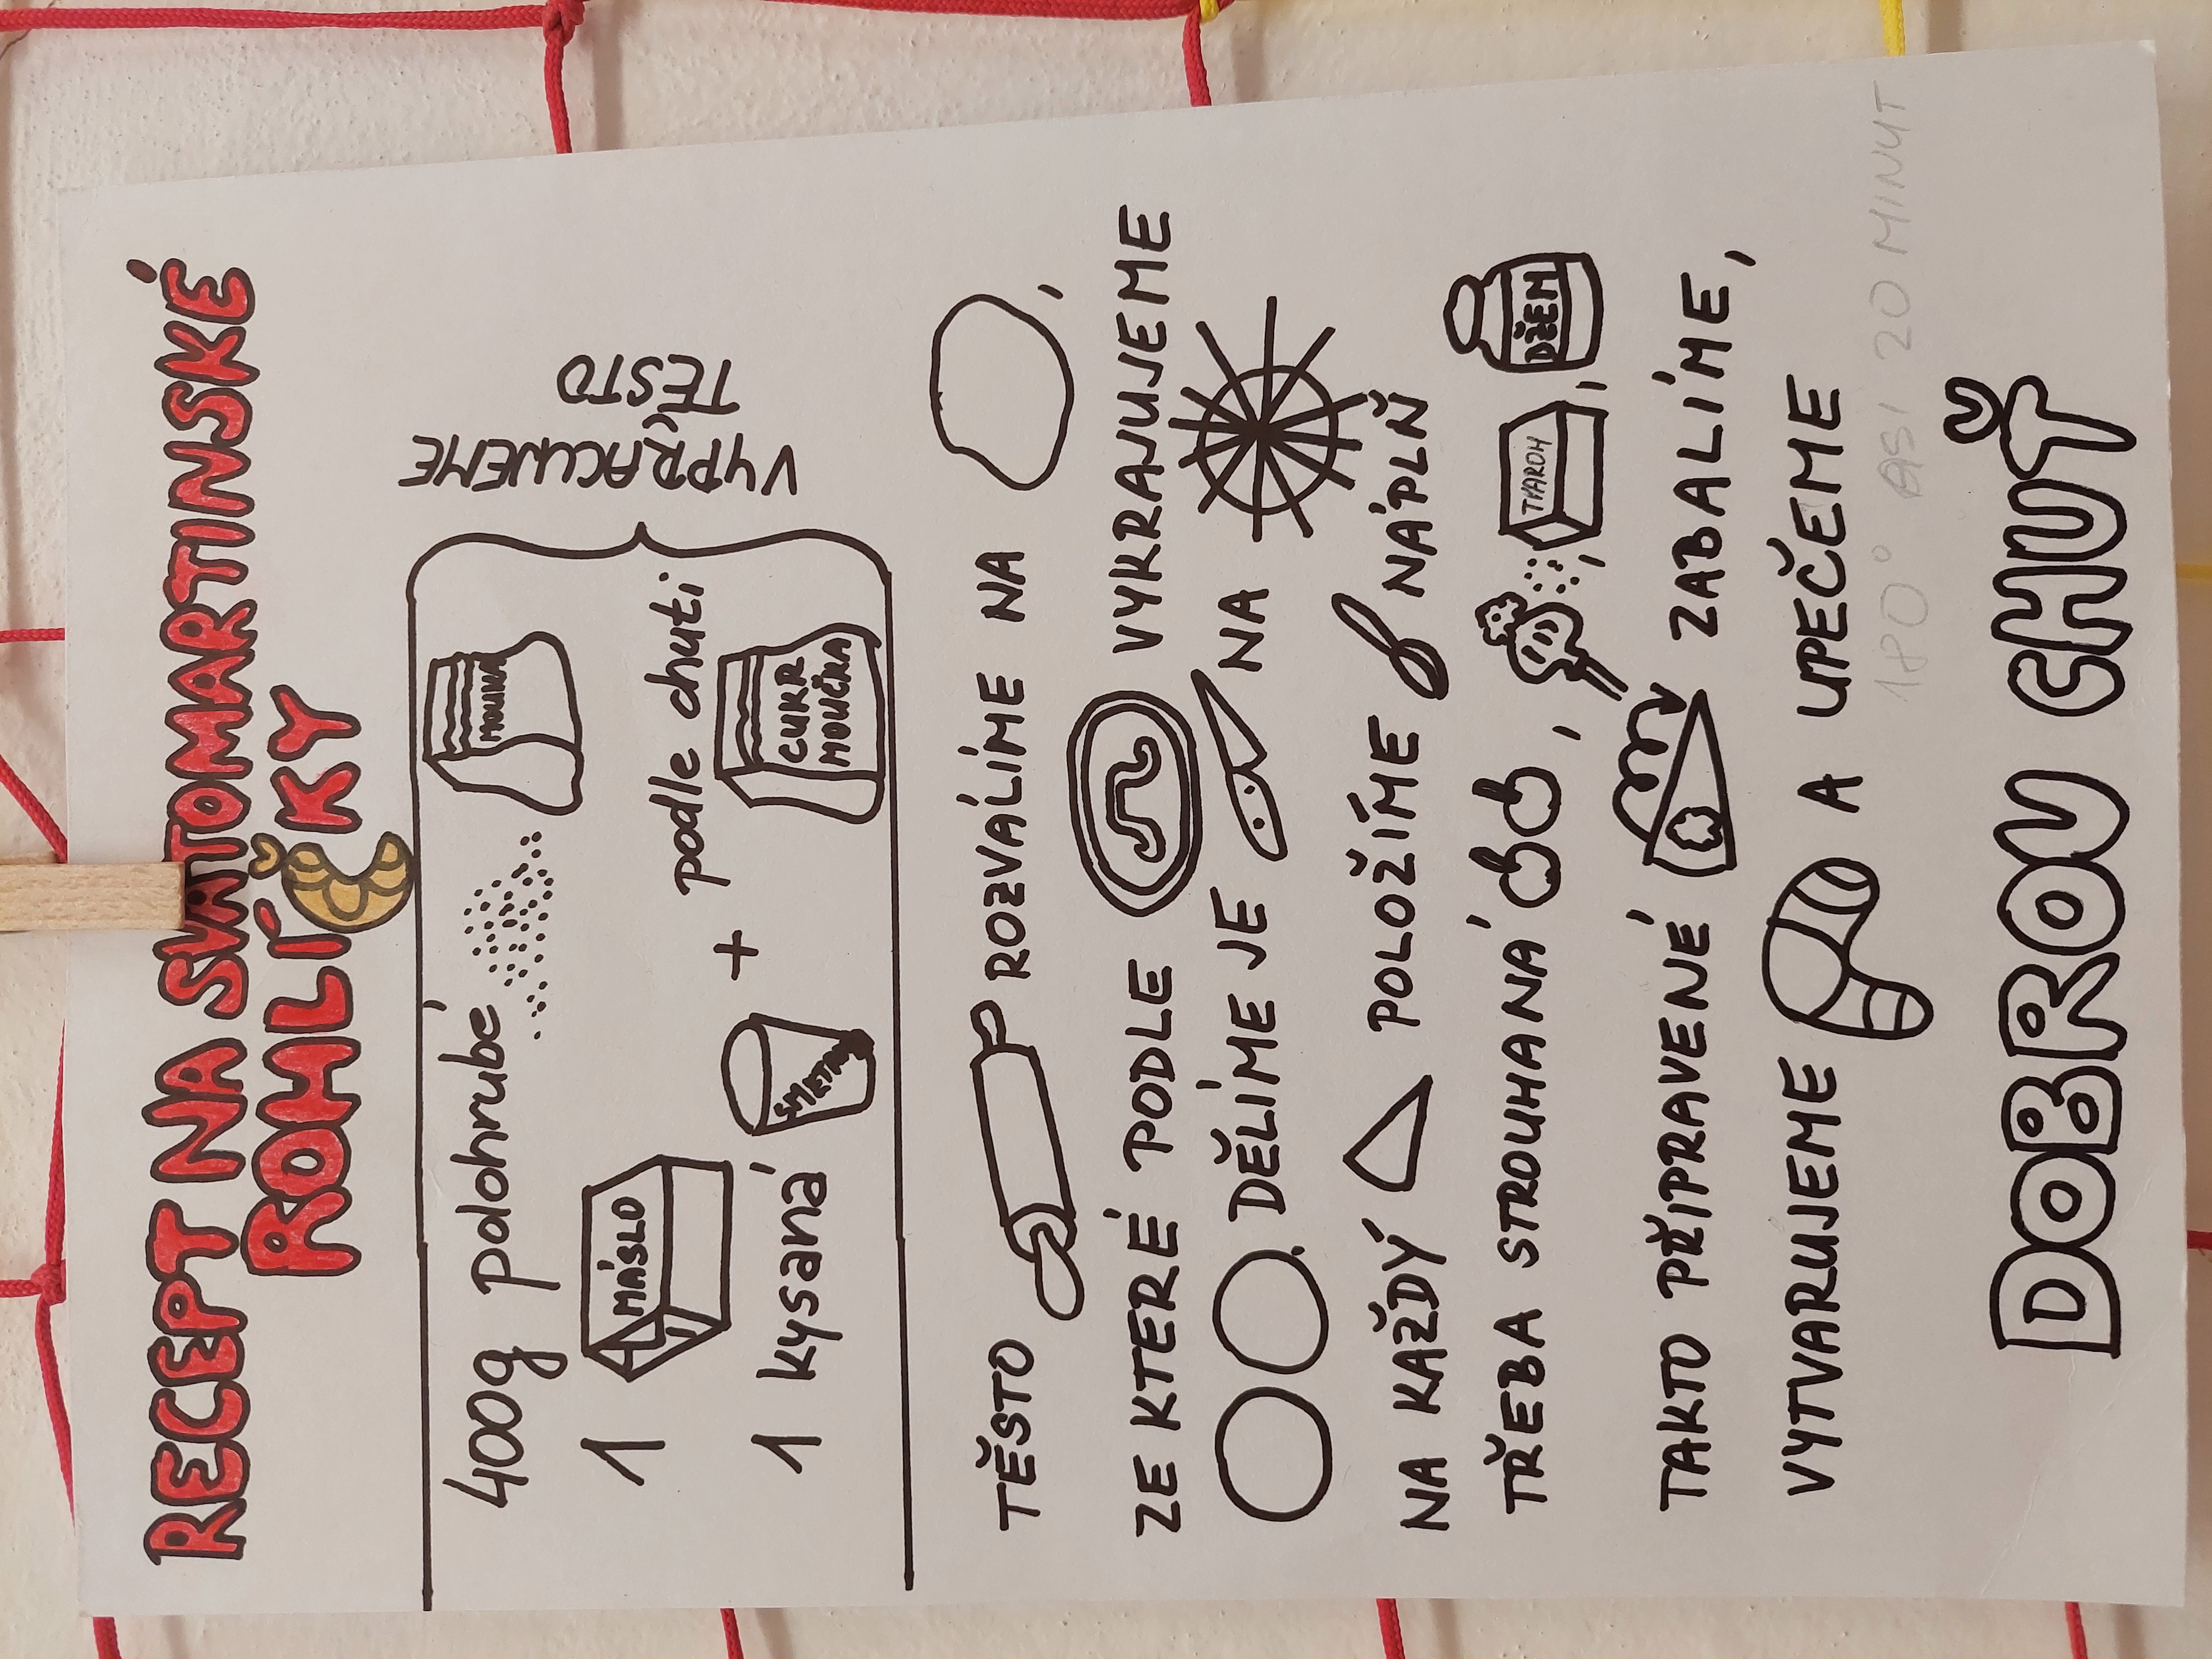 RECEPT NA SVATOMARTINSKÉ
ROHLÍČKY
400g polohrubé
MOUKA
1 MÁSLO
1 kysaná
+ podle chuti
CUKR
MOUČKA
VYPRACUJEME
TĚSTO
TĚSTO ROZVÁLÍME NA ,
ZE KTERÉ PODLE VYKRAJUJEME
. DĚLÍME JE NA
NA KAŽDÝ POLOŽÍME NÁPLŇ
TŘEBA STROUHANÁ , , TVAROH , DŽEM
TAKTO PŘIPRAVENÉ ZABALÍME,
VYTVARUJEME A UPEČEME
180° ASI 20 MINUT
DOBROU CHUŤ